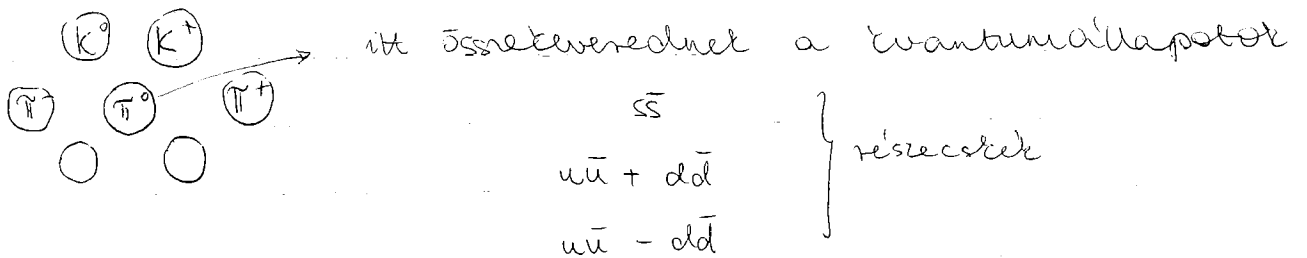 K⁰ K⁺ itt összekeverednek a kvantumállapotok
π⁻ π⁰ π⁺
ss̄
uū + dd̄
uū - dd̄
részecskék